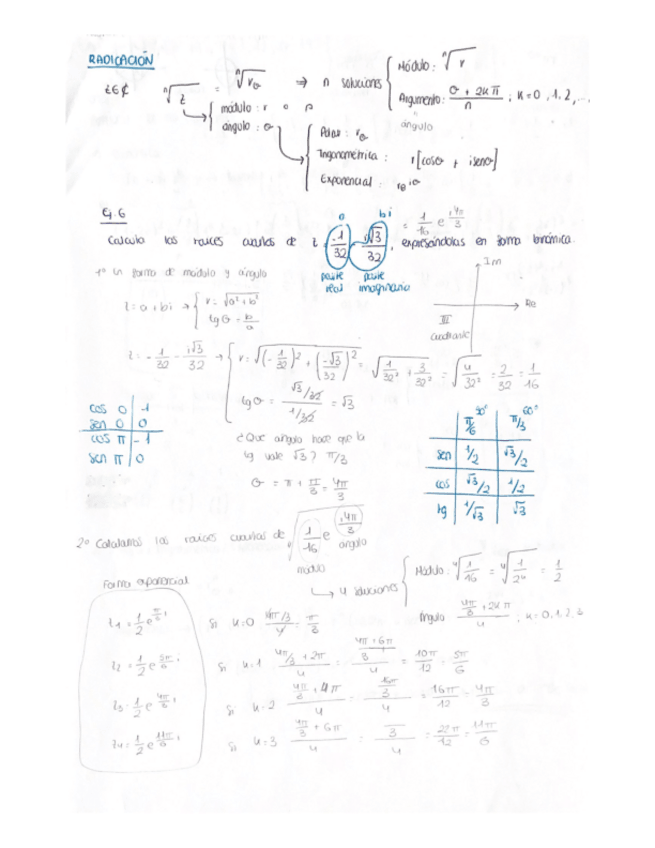 RADICACIÓN
z∈ℂ ⁿ√z = ⁿ√r_θ ⇒ n soluciones { Módulo: ⁿ√r
módulo: r o ρ
ángulo: θ
Argumento: (θ + 2kπ)/n ; k=0,1,2,...
ángulo
Polar: r_θ
Trigonométrica: r[cosθ + isenθ]
Exponencial: re^iθ
Ej. 6
a bi
= 1/16 e^(i4π/3)
Calcula las raíces cuartas de z = -1/32 - i√3/32, expresándolas en forma binómica.
parte real parte imaginaria
Im
Re
III cuadrante
1º en forma de módulo y ángulo
z = a + bi → { r = √(a² + b²)
tgθ = b/a
z = -1/32 - i√3/32 → { r = √((-1/32)² + (-√3/32)²) = √(1/32² + 3/32²) = √(4/32²) = 2/32 = 1/16
tgθ = (√3/32)/(1/32) = √3
cos 0 1
sen 0 0
cos π -1
sen π 0
¿Que angulo hace que la
tg vale √3? π/3
θ = π + π/3 = 4π/3
30° 60°
π/6 π/3
sen 1/2 √3/2
cos √3/2 1/2
tg 1/√3 √3
2º Calculamos las raíces cuartas de ⁴√(1/16 e^(i4π/3))
ángulo
módulo
↳ 4 soluciones { Módulo: ⁴√(1/16) = ⁴√(1/2⁴) = 1/2
Ángulo (4π/3 + 2kπ)/4 ; k=0,1,2,3
Forma exponencial
z₁ = 1/2 e^(π/3 i) Si k=0 (4π/3)/4 = π/3
z₂ = 1/2 e^(5π/6 i) Si k=1 (4π/3 + 2π)/4 = ((4π+6π)/3)/4 = 10π/12 = 5π/6
z₃ = 1/2 e^(4π/3 i) Si k=2 (4π/3 + 4π)/4 = (16π/3)/4 = 16π/12 = 4π/3
z₄ = 1/2 e^(11π/6 i) Si k=3 (4π/3 + 6π)/4 = /3/4 = 22π/12 = 11π/6